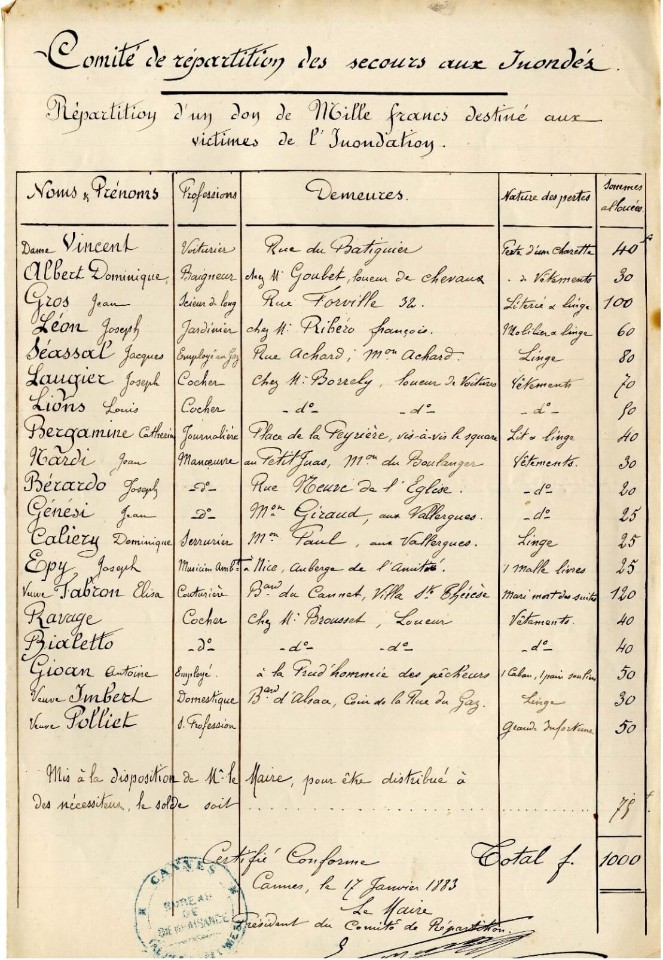 Comité de répartition des secours aux Inondés.
Répartition d'un don de Mille francs destiné aux
victimes de l'Inondation.
Noms & Prénoms Professions Demeures. Nature des pertes Sommes allouées
Dame Vincent Voiturier Rue du Batiguier Perte d'un charette 40 f
Albert Dominique, Baigneur chez Mr Goubet, loueur de chevaux - de Vêtements 30
Gros Jean Scieur de long Rue Forville 32. Literie & linge 100
Léon Joseph Jardinier chez Mr Ribéro françois. Mobilier & linge 60
Séassal Jacques Employé au Gaz Rue Achard, Mon Achard. Linge 80
Laugier Joseph Cocher chez Mr Borrely, loueur de Voitures Vêtements 70
Lions Louis Cocher - do - - do - - do - 50
Bergamine Catherine Journalière Place de la Peyrière, vis-à-vis le square Lit & linge 40
Nardi Jean Manœuvre au Petit Juas, Mon du Boulanger Vêtements. 30
Bérardo Joseph - do - Rue Neuve de l'Eglise. - do - 20
Génési Jean - do - Mon Giraud, aux Vallergues. - do - 25
Caliery Dominique Serrurier Mon Paul, aux Vallergues. Linge 25
Epy Joseph Musicien Ambt à Nice, Auberge de l'Amitié. 1 malle livres 25
Veuve Fabron Elisa Couturière Bard du Cannet, Villa Ste Thérèse Mari mort des suites 120
Ravage Cocher chez Mr Brousset, Loueur Vêtements. 40
Bialetto - do - - do - - do - - do - 40
Gioan Antoine Employé. à la Prud'hommie des pêcheurs 1 Caban, 1 pair souliers 50
Veuve Imbert Domestique Bard d'Alsace, Coin de la Rue du Gaz. Linge 30
Veuve Polliet s. Profession Grande infortune 50
Mis à la disposition de Mr le Maire, pour être distribué à
des nécessiteux, le solde soit 75 f
Certifié Conforme Total f. 1000
Cannes, le 17 Janvier 1883
Le Maire
Président du Comité de Répartition.
CANNES
BUREAU
DE
BIENFAISANCE